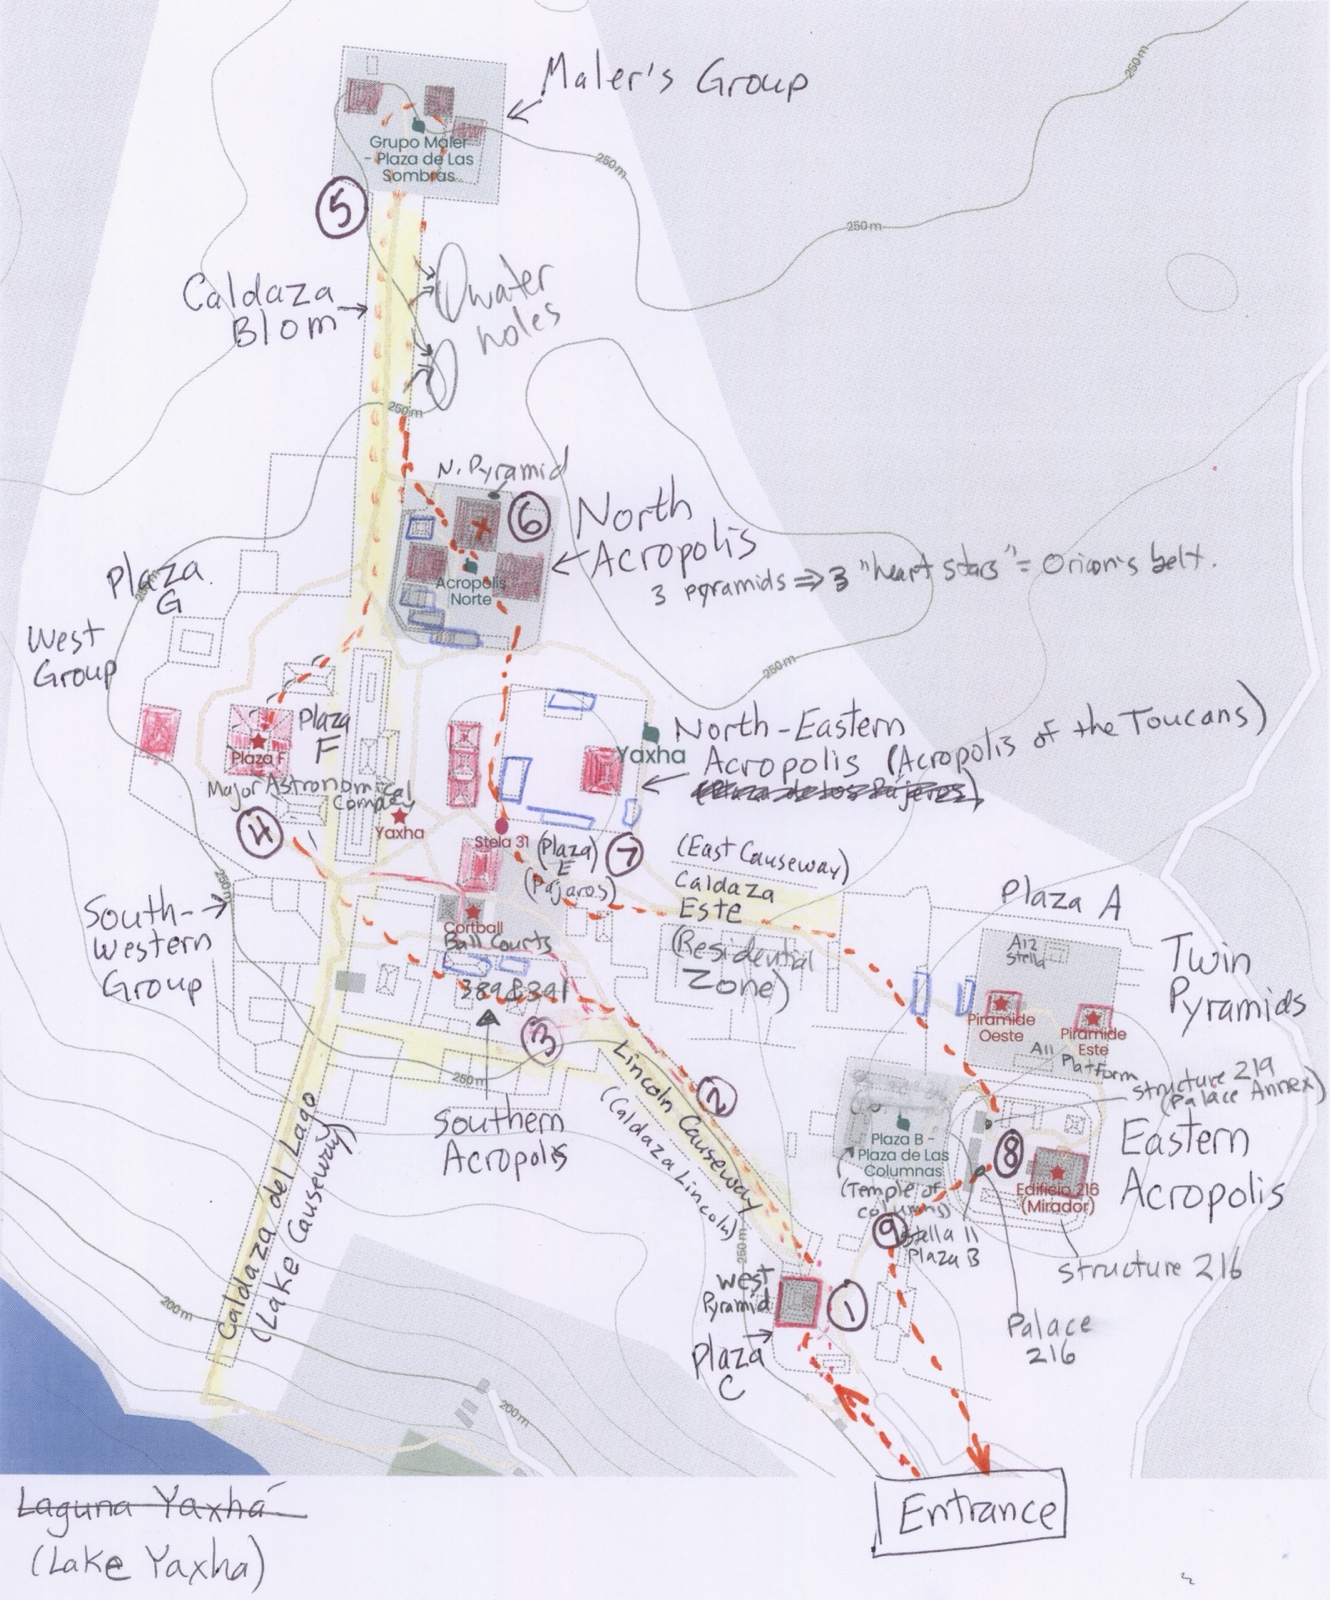 250m
Maler's Group
Grupo Maler
- Plaza de Las
Sombras
250m
250m
5
Caldaza
Blom
water
holes
250m
N. Pyramid
6
North
Acropolis
3 pyramids => 3 "heart stars" = Orion's belt.
Acropolis
Norte
Plaza
G
250m
West
Group
250m
Plaza
F
Plaza F
Major Astronomical
Complex
4
Yaxha
North-Eastern
Acropolis (Acropolis of the Toucans)
(Plaza de los Pájaros)
Yaxha
Stela 31
(Plaza)
E
(Pájaros)
7
(East Causeway)
Caldaza
Este
(Residential
Zone)
250m
South-
Western
Group
Cortball
Ball Courts
389&391
3
Plaza A
A12
Stella
Twin
Pyramids
Piramide
Oeste
Piramide
Este
A11
Platform
structure 219
(Palace Annex)
250m
Southern
Acropolis
2
Lincoln Causeway
(Caldaza Lincoln)
Plaza B -
Plaza de Las
Columnas
(Temple of
columns)
8
Eastern
Acropolis
Edificio 216
(Mirador)
9
Stella 11
Plaza B
structure 216
Palace
216
Caldaza del Lago
(Lake Causeway)
200m
250m
West
Pyramid
1
Plaza
C
200m
Entrance
Laguna Yaxhá
(Lake Yaxha)